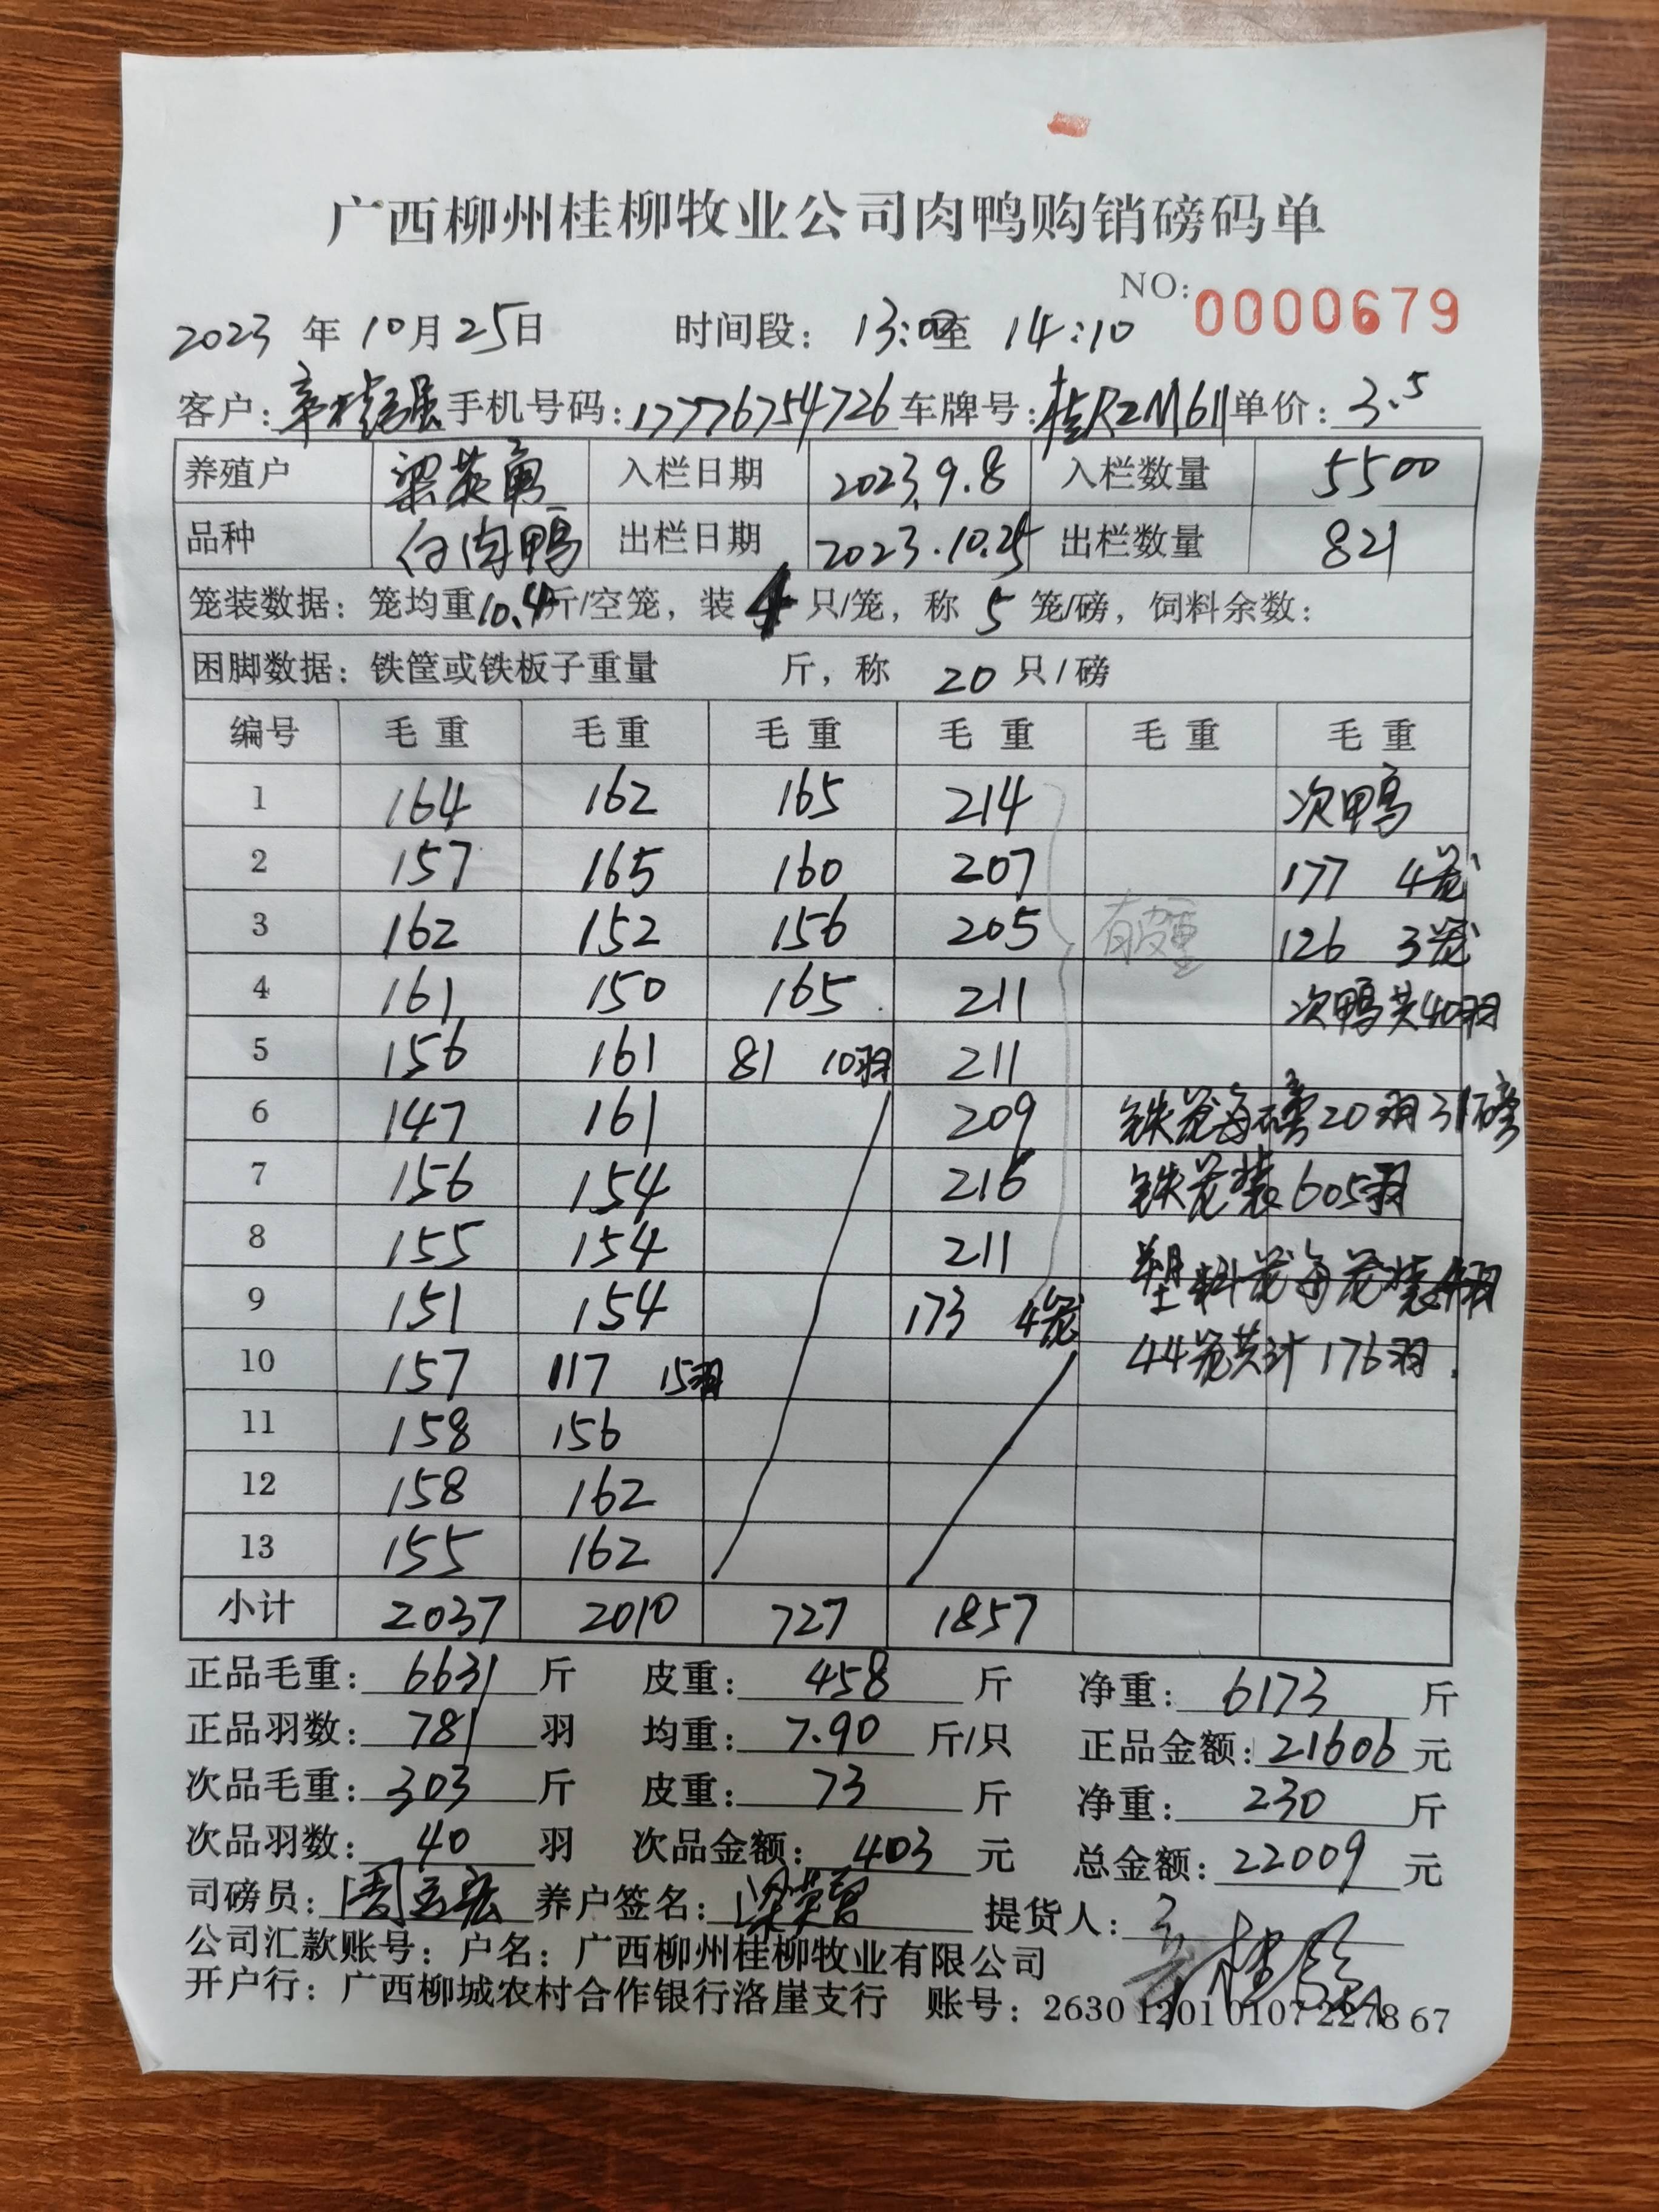 广西柳州桂柳牧业公司肉鸭购销磅码单
NO: 0000679
2023 年 10月 25日 时间段: 13:00至 14:10
客户: 手机号码:17776754726 车牌号:桂R2M611 单价: 3.5
养殖户 梁英勇 入栏日期 2023.9.8 入栏数量 5500
品种 白肉鸭 出栏日期 2023.10.25 出栏数量 821
笼装数据: 笼均重10.4斤/空笼, 装 4 只/笼, 称 5 笼/磅, 饲料余数:
困脚数据: 铁筐或铁板子重量 斤, 称 20 只/磅
编号 毛重 毛重 毛重 毛重 毛重 毛重
1 164 162 165 214 次鸭
2 157 165 160 207 177 4笼
3 162 152 156 205 有皮重 126 3笼
4 161 150 165 211 次鸭共40羽
5 156 161 81 10羽 211
6 147 161 209 铁笼每磅20羽31磅
7 156 154 216 铁笼装605羽
8 155 154 211 塑料笼每笼装4羽
9 151 154 173 4笼
10 157 117 15羽 44笼共计176羽.
11 158 156
12 158 162
13 155 162
小计 2037 2010 727 1857
正品毛重: 6631 斤 皮重: 458 斤 净重: 6173 斤
正品羽数: 781 羽 均重: 7.90 斤/只 正品金额: 21606 元
次品毛重: 303 斤 皮重: 73 斤 净重: 230 斤
次品羽数: 40 羽 次品金额: 403 元 总金额: 22009 元
司磅员: 养户签名: 提货人:
公司汇款账号: 户名: 广西柳州桂柳牧业有限公司
开户行: 广西柳城农村合作银行洛崖支行 账号: 2630 1201 0107 2278 67